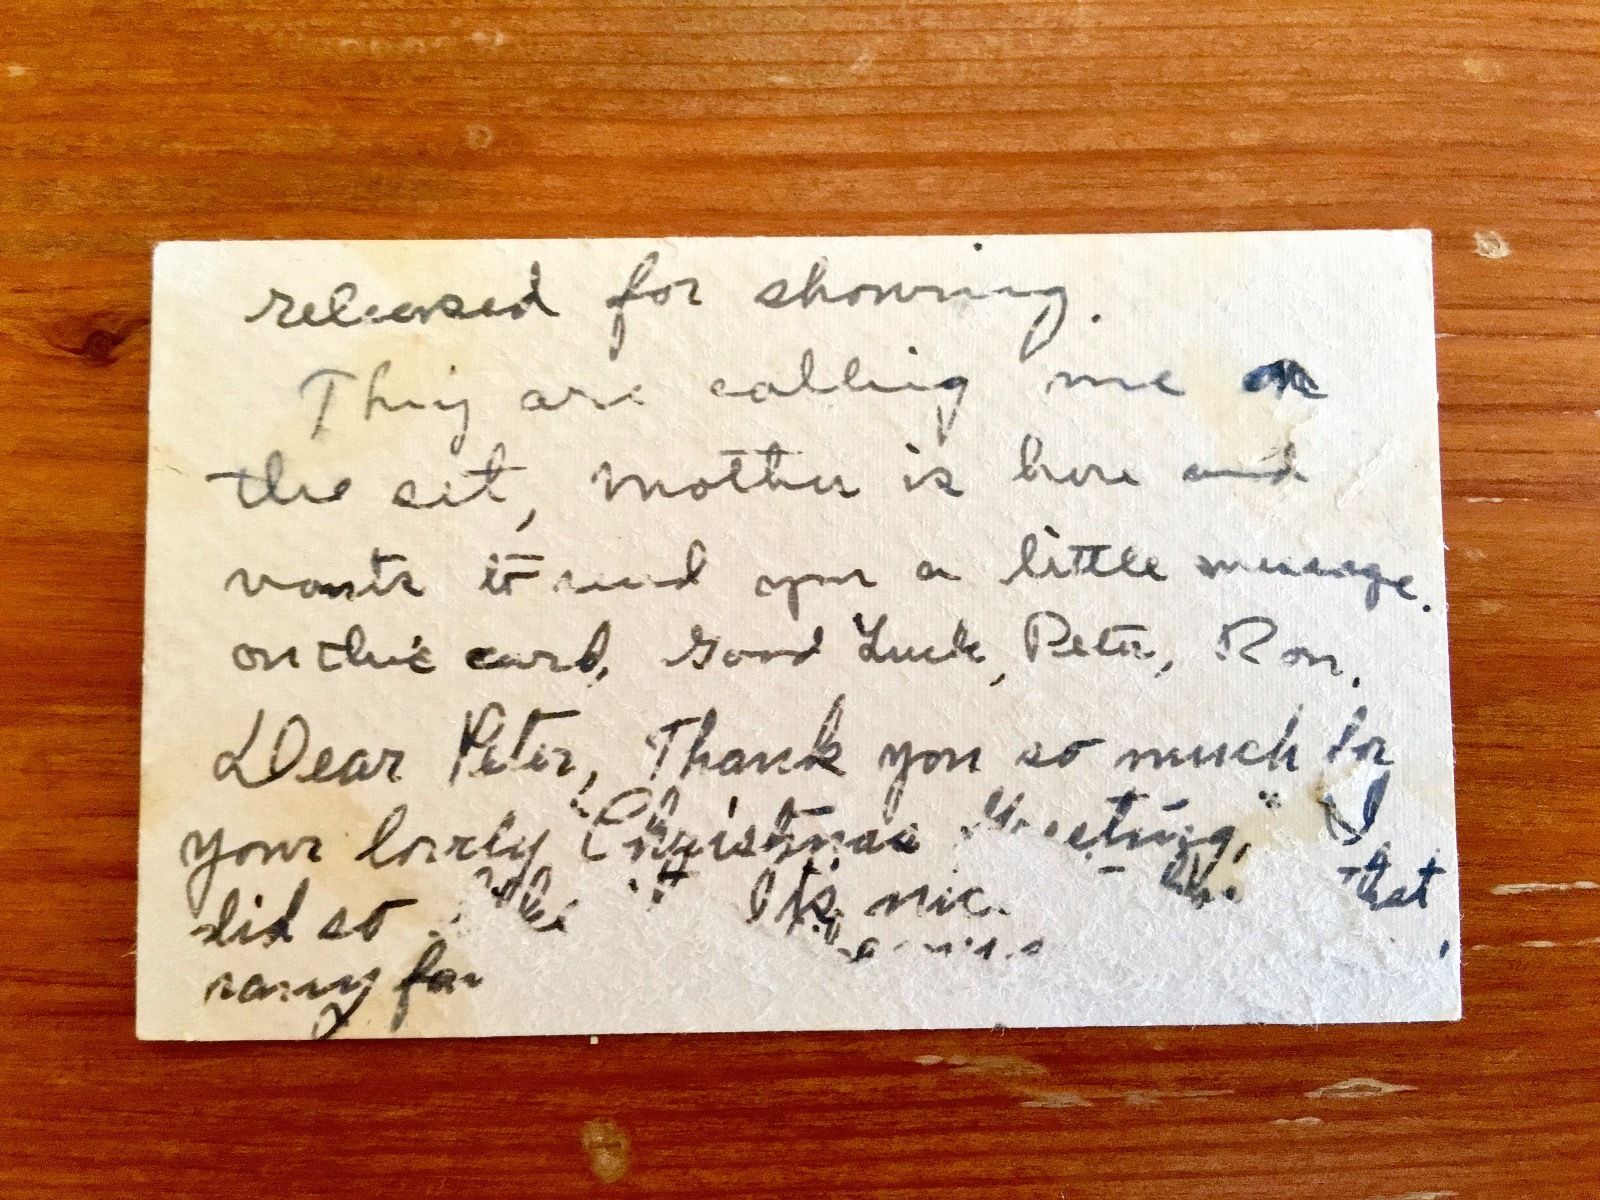 released for showing.
They are calling me on
the set, mother is here and
wants to send you a little message.
on this card, Good Luck, Peter, Ron.
Dear Peter, Thank you so much for
your lovely "Christmas Greeting," I
did so like it It's nice that
many fan